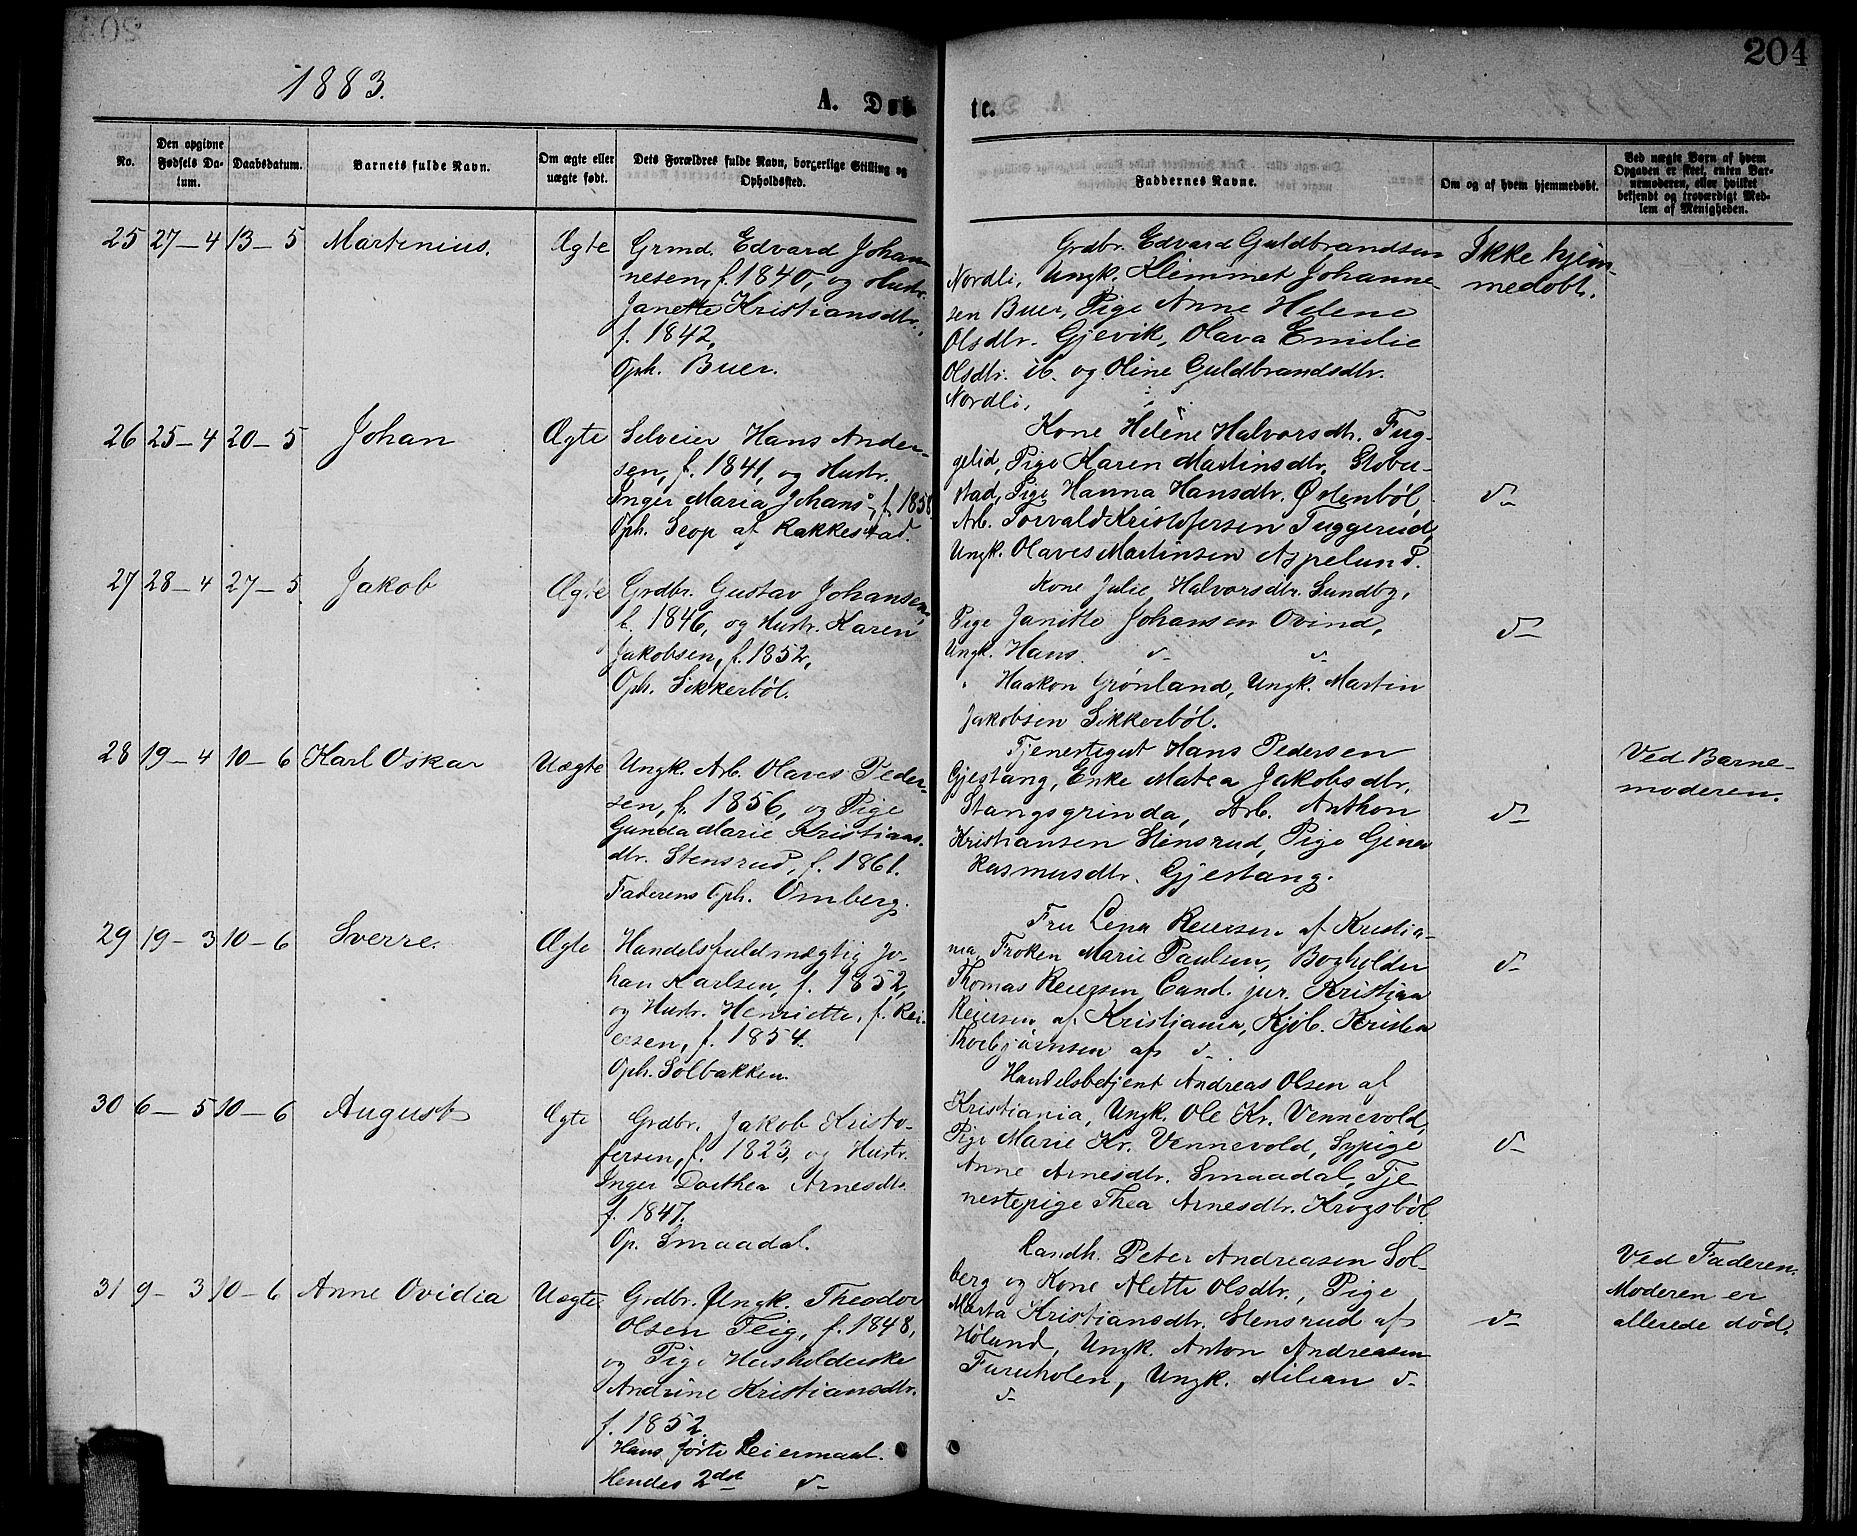 204
1883.
A. Døb
te.
No.
Den opgivne Fødsels Datum.
Daabsdatum.
Barnets fulde Navn.
Om ægte eller uægte født.
Dets Forældres fulde Navn, borgerlige Stilling og Opholdssted.
Faddernes Navne.
Om og af hvem hjemmedøbt.
Ved uægte Barn af hvem Opgaven er sket, enten Barnemoderen, eller hvilket bekjendt og troværdigt Medlem af Menigheden.
25 27-4 13-5 Martinius. Ægte
Grmd. Edvard Johan-
nesen, f. 1840, og Hustr.
Janette Kristiansdtr.,
f. 1842,
Oph. Buer.
Grdbr. Edvard Guldbrandsen
Nordli, Ungk. Klemmet Johanne-
sen Buer, Pige Anne Helene
Olsdtr. Gjevik, Olava Emilie
Olsdtr. ib. og Oline Guldbrandsdtr.
Nordli,
Ikke hjem-
medøbt.
26 25-4 20-5 Johan Ægte
Selveier Hans Ander-
sen, f. 1841, og Hustr.
Inger Maria Johans., f. 1858.
Oph. Seop af Rakkestad.
Kone Helene Halvorsdtr. Fug-
gelid, Pige Karen Martinsdtr.
stad, Pige Hanna Hansdtr. Østenbøl
Arb. Torvald Kristofersen Fuggerud,
Ungk. Olaves Martinsen Appelund.
d-
27 28-4 27-5 Jakob Ægte
Grdbr. Gustav Johansen,
f. 1846, og Hustr. Karen
Jakobsen, f. 1852,
Oph. Sikkerbøl.
Kone Julie Halvorsdtr. Sundby,
Pige Janitte Johansen Ovind,
Ungk. Hans d- d-
" Haakon Grønland, Ungk. Martin
Jakobsen Sikkerbøl.
d-
28 19-4 10-6 Karl Oskar Uægte
Ungk. Arb. Olaves Peder-
sen, f. 1856, og Pige
Gunda Marie Kristians-
dtr. Stensrud, f. 1861.
Faderens Oph. Omberg.
Tjenestegut Hans Pedersen
Gjestang, Enke Matea Jakobsdtr.
Stangsgrinda, Arb. Anthon
Kristiansen Stensrud, Pige Gina
Rasmusdtr. Gjestang.
d-
Ved Barne-
moderen.
29 19-3 10-6 Sverre. Ægte
Handelsfuldmægtig Jo-
han Karlsen, f. 1852,
og Hustr. Henriette, f. Rei-
ersen, f. 1854.
Oph. Solbakken.
Fru Lena Reiersen af Kristia-
nia, Frøken Marie Paulsen, Bogholder
Thomas Reiersen Cand. jur. Kristian
Reiersen af Kristiania, Kjøb. Kristen
Thorbjørnsen af d-.
d-
30 6-5 10-6 August Ægte
Grdbr. Jakob Kristo-
fersen, f. 1823, og Hustr.
Inger Dorthea Arnesdtr.
f. 1847.
Op. Smaadal.
Handelsbetjent Andreas Olsen af
Kristiania, Ungk. Ole Kr. Vennevold,
Pige Marie Kr. Vennevold, Sypige
Anne Arnesdtr. Smaadal, Tje
nestepige Thea Arnesdtr. Krogsbøl.
d-
31 9-3 10-6 Anne Ovidia Uægte
Grdbr. Ungk. Theodor
Olsen Teig, f. 1848,
og Pige Husholderske
Andrine Kristiansdtr.
f. 1852.
Hans første Leiermaal.
Hendes 2det d-
Landh. Peter Andreasen Sol-
berg og Kone Alette Olsdtr., Pige
Marta Kristiansdtr. Stensrud af
Høland, Ungk. Anton Andreasen
Furuholen, Ungk. Milian d-
d-
d-
Ved Faderen.
Moderen er
allerede død.